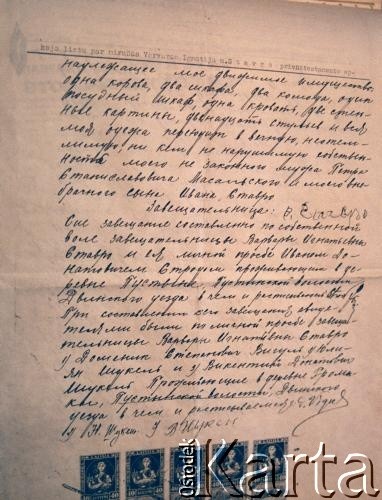 raja lietu par mirušās Varvaras Ignatija m. Stavro privattestamenta ap-
надлежащее мое движимое имущество:
одна корова, два шкафа, два комода, один
посудный шкаф, одна кровать, две стен-
ные картины, двенадцать стульев и вся
моя одежда переходит в вечную, неотем-
лимую, ни кем не нарушимую собствен-
ность моего не законного мужа Петра
Станиславовича Масальского и моего вне
брачного сына Ивана Ставро
Завещательница: В. Ставро
Сие завещание составлено по собственной
воле завещательницы Варвары Игнатьевны
Ставро и ея личной просьбе Иваном До-
натовичем Стродом проживающим в де-
ревне Пустынке, Пустынской волости
Двинского уезда в чем и расписываюсь
При составлении сего завещания свиде-
телями были по личной просьбе завеща-
тельницы Варвары Игнатьевны Ставро
у Доменик Степанович Вигуль у
ян Шукель и у Викентий Донатович
Шукель Проживающие в деревне
Пустынской волости, Двинского
уезда в чем и расписываемся
1) Н. Шукель
Ośrodek
Karta